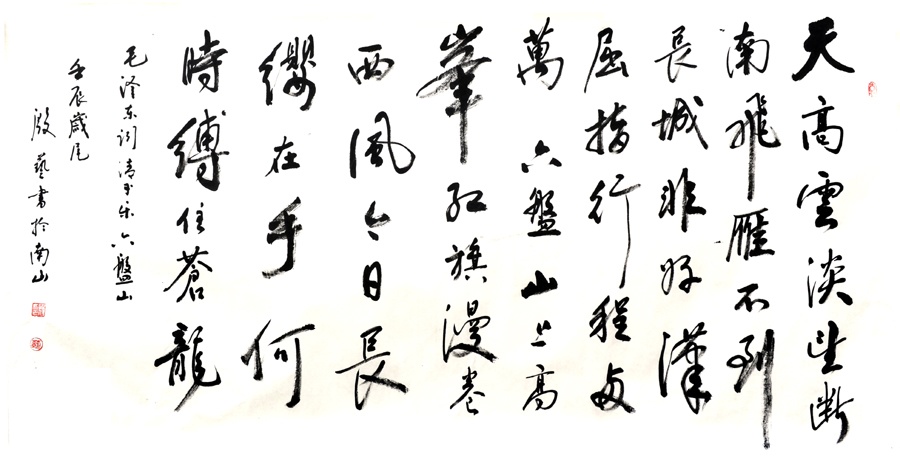 天高雲淡望斷
南飛雁不到
長城非好漢
屈指行程
萬六盤山上高
峯紅旗漫卷
西風今日長
纓在手何
時縛住蒼龍
毛泽东词清平乐六盤山
壬辰歲尾
殷藝書於南山